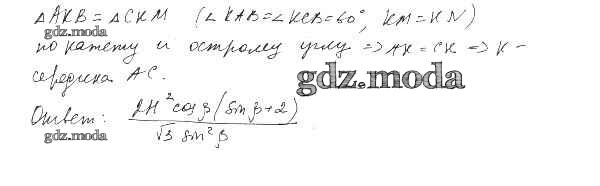 △AKB = △CKM (∠KAB = ∠KCB = 60°, KM = KN)
gdz.moda
по катету и острому углу ⇒ AK = CK ⇒ K –
середина AC.
gdz.moda
Ответ: 2H² cos β (sin β + 2) / √3 sin² β
gdz.moda